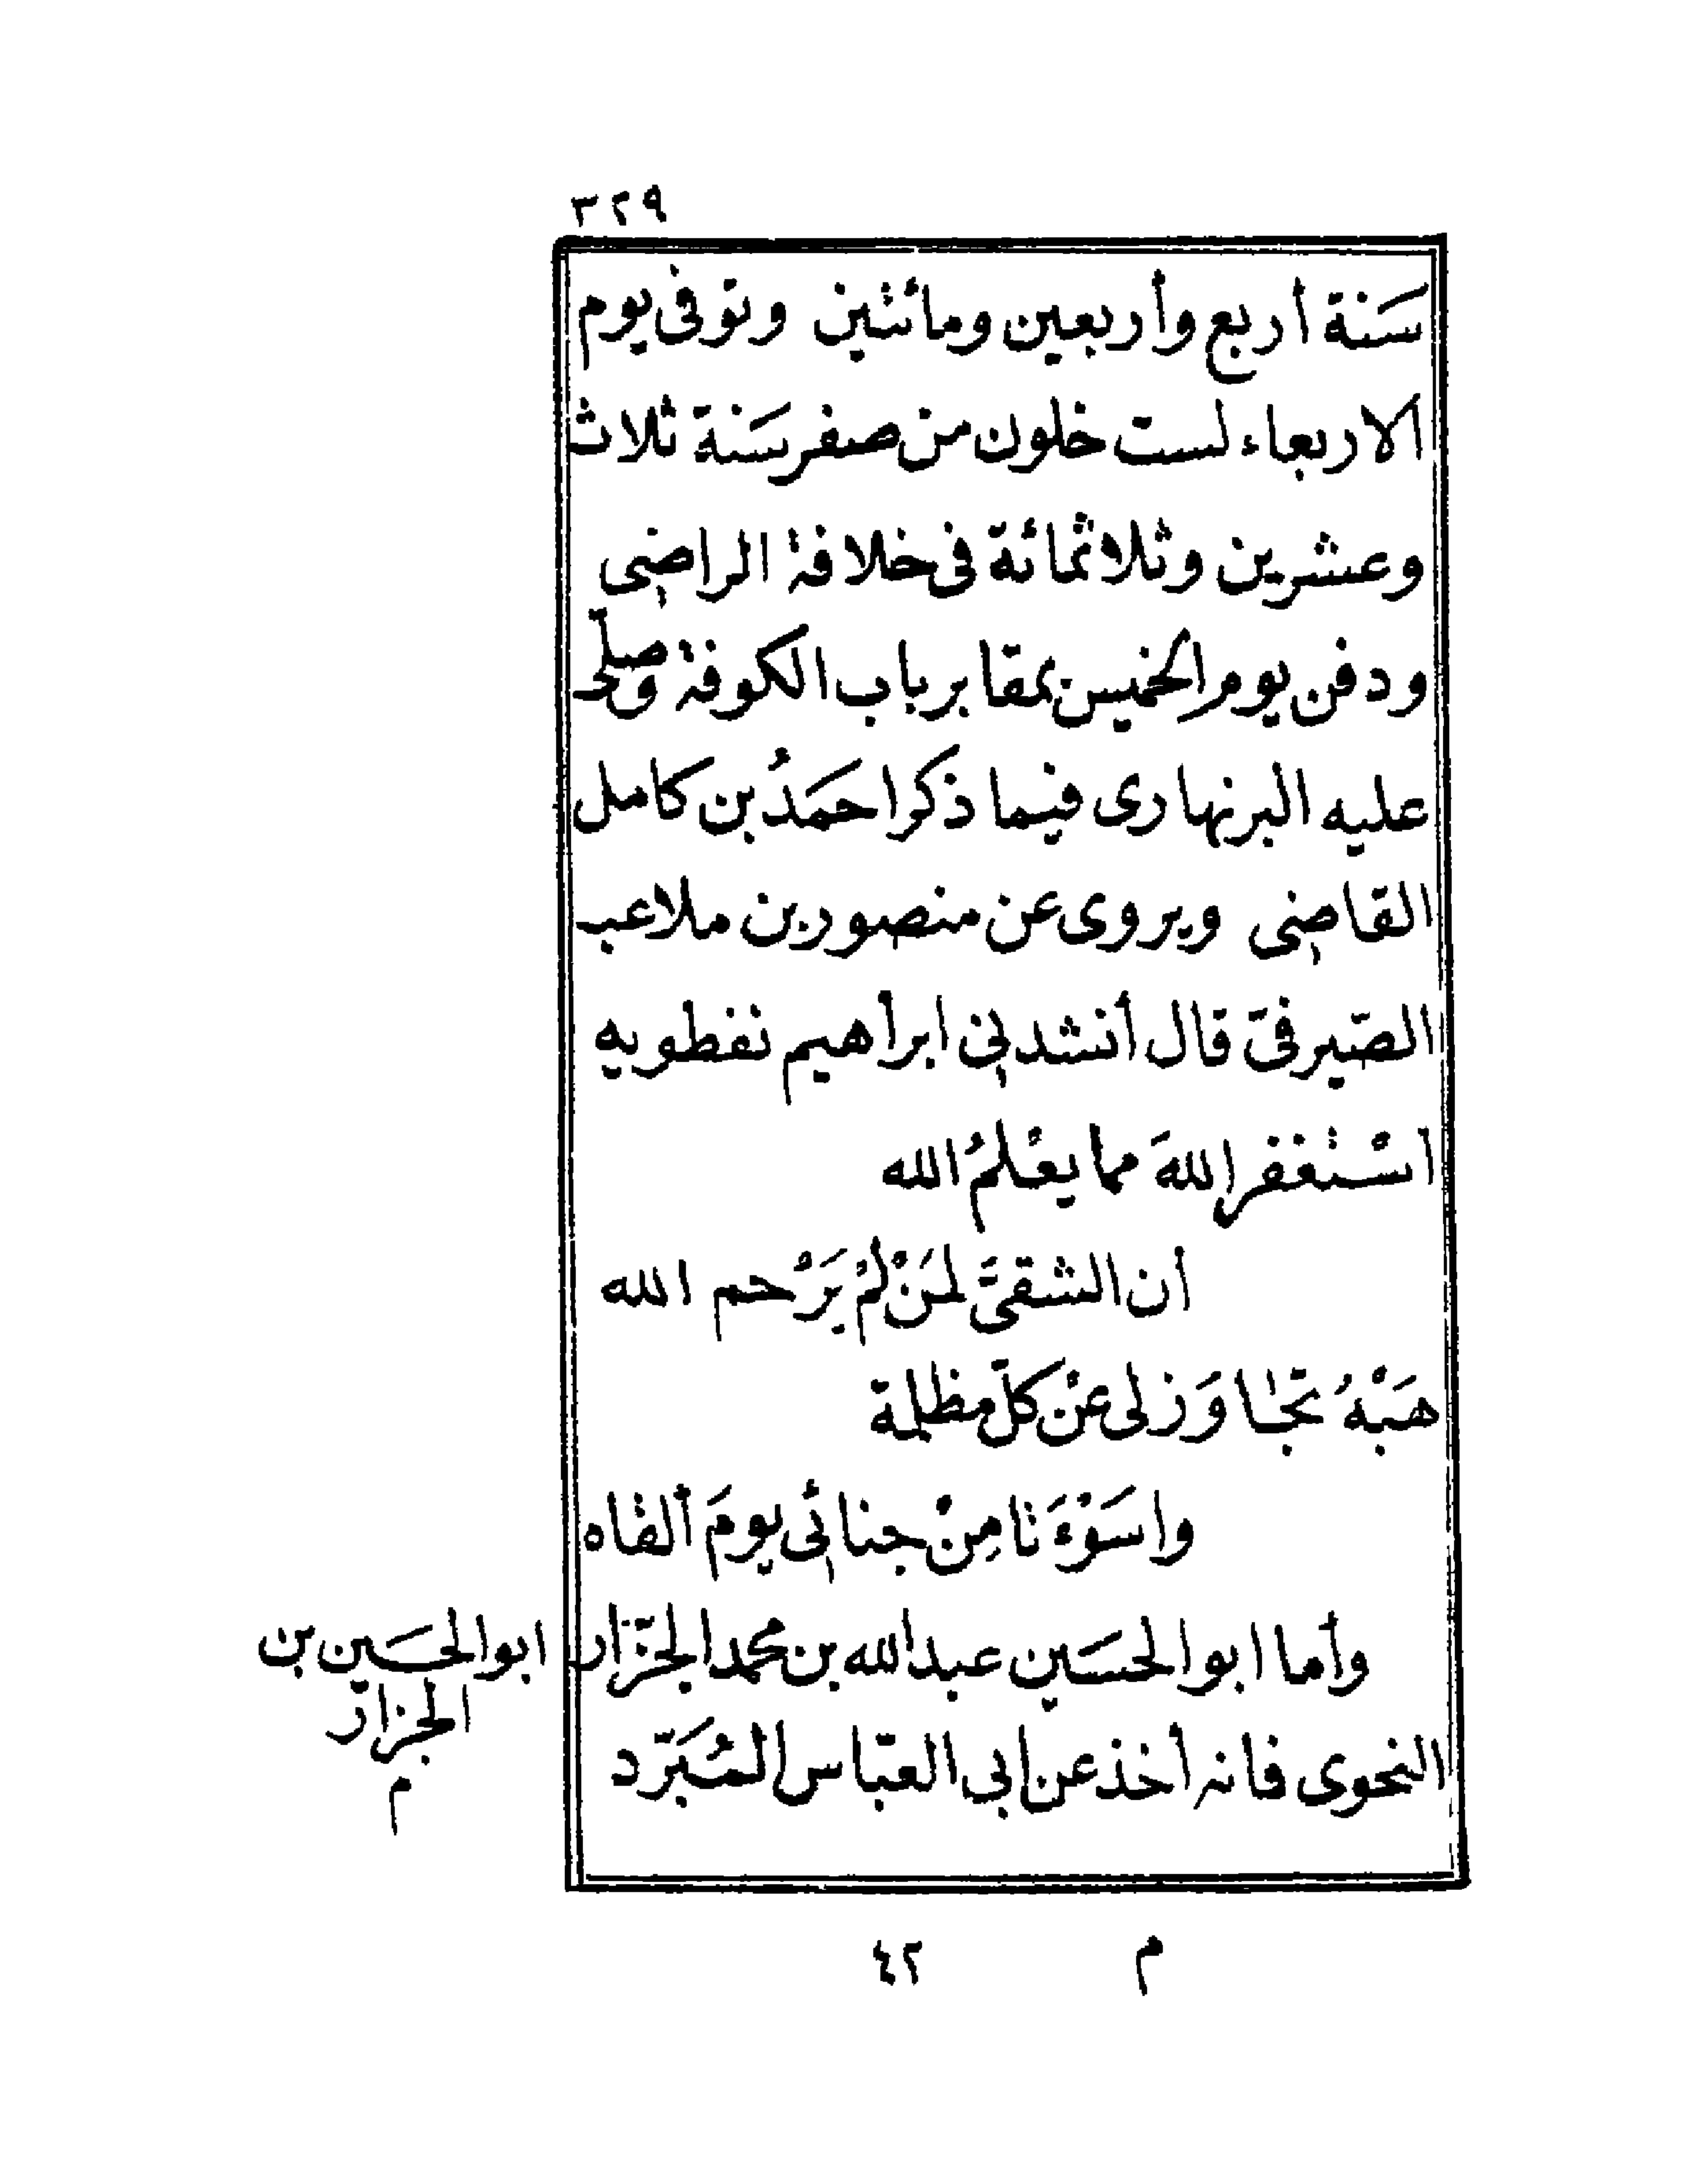 ٣٢٩
سَنة أربع وأربعين ومائتين وتوفى يوم
الاربعاء لست خلون من صفر سَنة ثلاث
وعشرين وثلاثمائة فى خلافة الراضى
ودفن يوم الخميس بمقابر باب الكوفة وصلّى
عليه البربهارى فيما ذكر احمَدُ بن كامل
القاضى ويروى عن منصور بن ملاعب
الصّيرفىّ قال أنشدنى ابراهيم نفطويه
استْغفر اللهَ مما يعْلمُ الله
أن الشقىَّ لمَنْ لمْ يَرْحم الله
هَبْهُ تجَاوَزلى عنْ كلّ مظلمة
واسَوْءَتا مِنْ جنائى يومَ ألقاه
وأما ابوالحسَين عبدالله بن محمد الجزّار
النحوى فانه أخذ عن ابى العبّاس المُبَرّد
ابوالحسَين بن
الجزار
م
م ٤٢